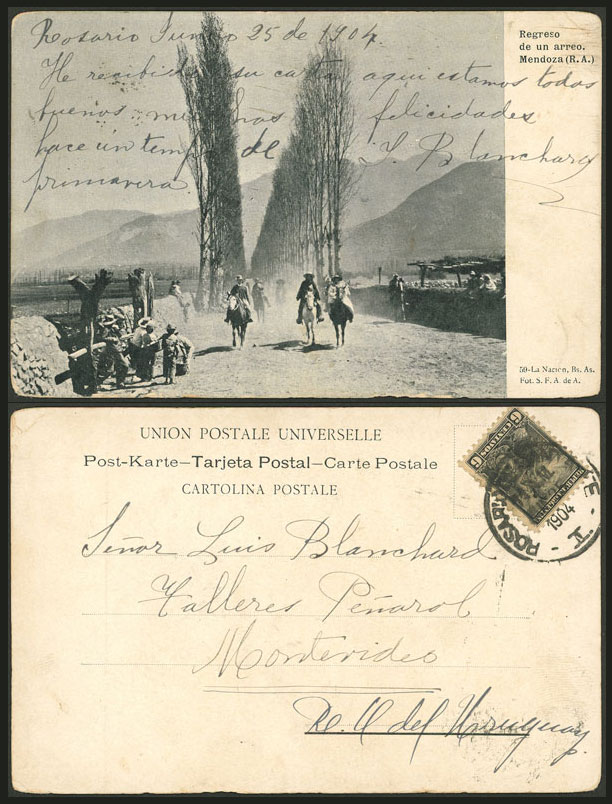 Rosario Junio 25 de 1904.
He recibido su carta aqui estamos todos
buenos muchas felicidades
hace un tempo de
primavera. Blanchard
Regreso
de un arreo.
Mendoza (R.A.)
50-La Nación, Bs. As.
Fot. S. F. A. de A.
UNION POSTALE UNIVERSELLE
Post-Karte—Tarjeta Postal—Carte Postale
CARTOLINA POSTALE
Señor Luis Blanchard
Talleres Peñarol
Montevideo
R. O del Uruguay.
5 CENTAVOS 5
1904